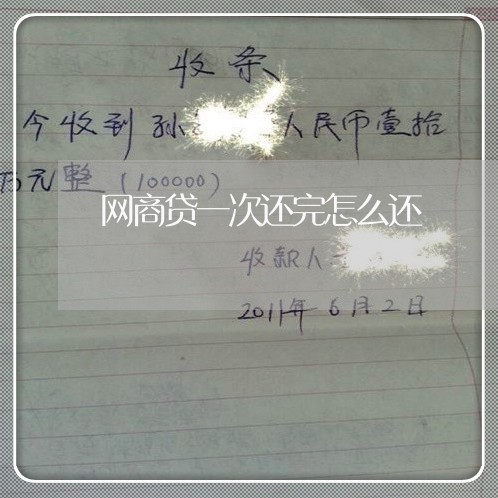 收条
今收到孙 人民币壹拾
万元整(100000)
网商贷一次还完怎么还
收款人
2011年6月2日